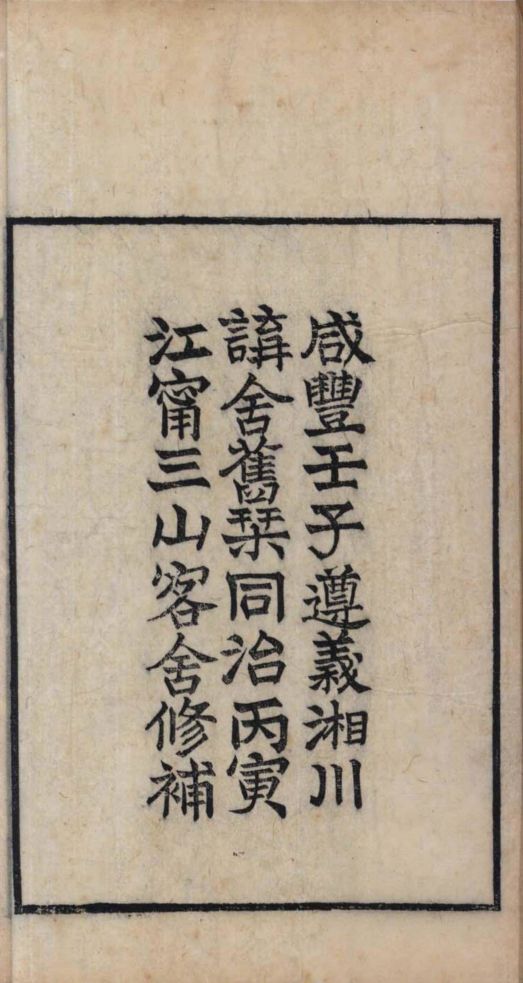 咸豐壬子遵義湘川
講舍舊栞同治丙寅
江甯三山客舍修補